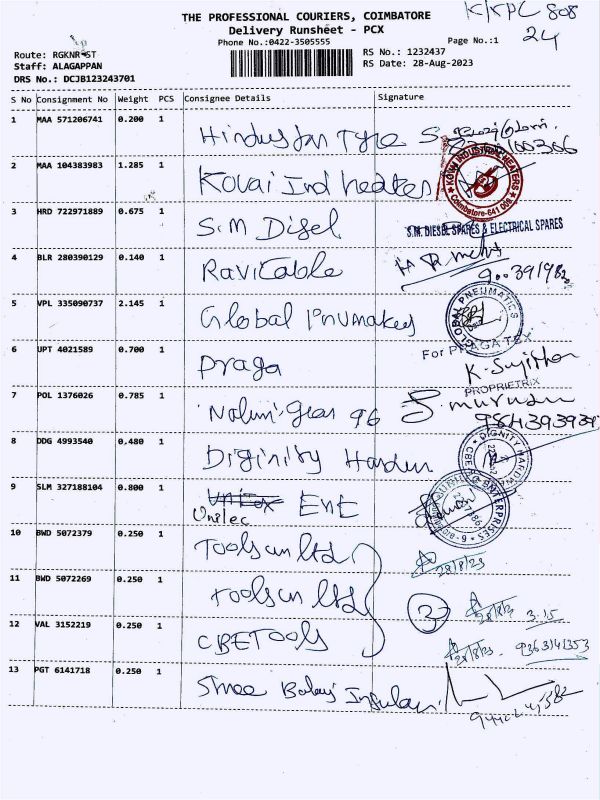 THE PROFESSIONAL COURIERS, COIMBATORE
K/KPC 808
Delivery Runsheet - PCX
24
Phone No.:0422-3505555
Page No.:1
Route: RGKNR-ST
RS No.: 1232437
Staff: ALAGAPPAN
RS Date: 28-Aug-2023
DRS No.: DCJB123243701
S No Consignment No Weight PCS Consignee Details Signature
1 MAA 571206741 0.200 1 Hindustan Tyre S
2 MAA 104383983 1.285 1 Kovai Ind heates
KOVAI INDUSTRIAL HEATERS
Coimbatore-641
3 HRD 722971889 0.675 1 S.M Disel
S.M. DIESEL SPARES & ELECTRICAL SPARES
4 BLR 280390129 0.140 1 Ravi Cable
5 VPL 335090737 2.145 1 Global Pnumakes
GLOBAL PNEUMATICS
For PRAGA TEX
6 UPT 4021589 0.700 1 Praga
PROPRIETRIX
7 POL 1376026 0.785 1 96
murugan
9843939391
8 DDG 4993540 0.480 1 Diginity Harden
DIGNITY HARDW
9 SLM 327188104 0.800 1 EnE
Unitec
ENTERPRISES
10 BWD 5072379 0.250 1 Toolsun ltd
28/8/23
11 BWD 5072269 0.250 1 Toolsun ltd
3
28/8/23 3.15
12 VAL 3152219 0.250 1 CBE Tools
28/8/23 9363141353
13 PGT 6141718 0.250 1 Shree Balaji Insulani